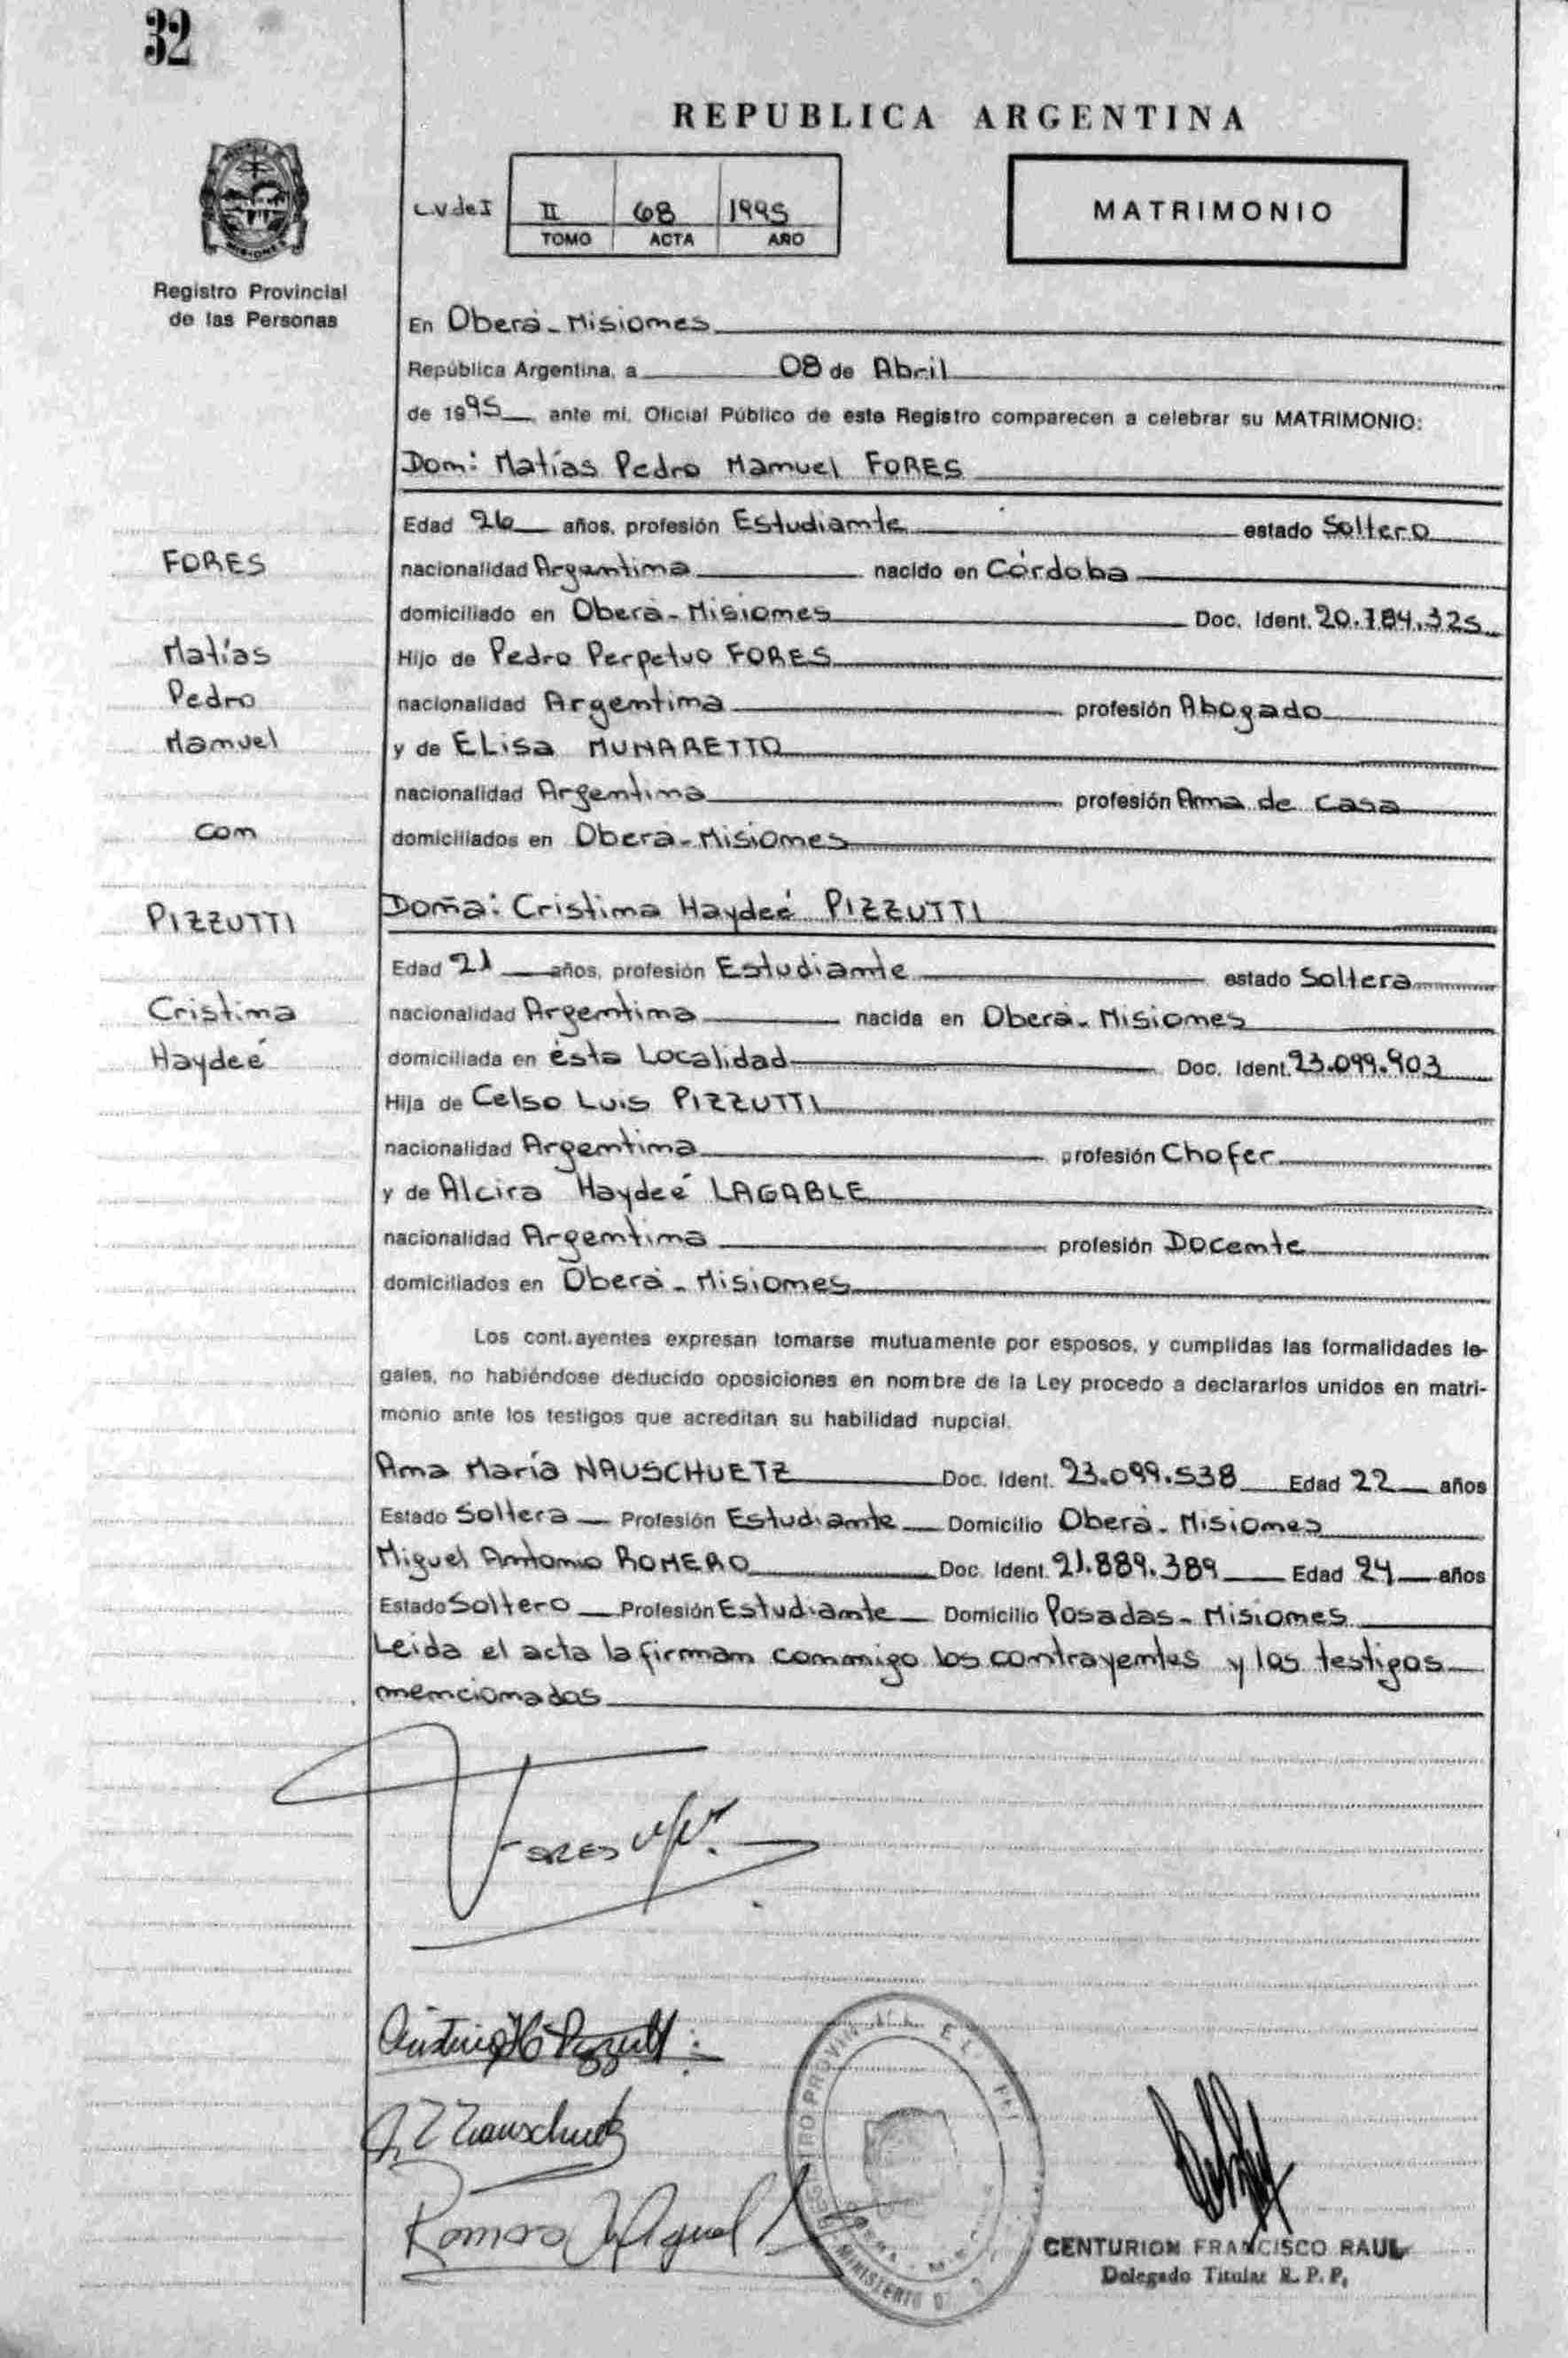 32
REPUBLICA ARGENTINA
L.V de I II 68 1995
TOMO ACTA AÑO
MATRIMONIO
Registro Provincial
de las Personas
En Oberá - Misiones
República Argentina, a 08 de Abril
de 1995, ante mí, Oficial Público de este Registro comparecen a celebrar su MATRIMONIO:
Don: Matías Pedro Manuel FORES
Edad 26 años, profesión Estudiante estado Soltero
FORES
nacionalidad Argentina nacido en Córdoba
domiciliado en Oberá - Misiones Doc. Ident. 20.784.325
Matías
Hijo de Pedro Perpetuo FORES
Pedro
nacionalidad Argentina profesión Abogado
Manuel
y de ELisa MUNARETTO
nacionalidad Argentina profesión Ama de casa
con
domiciliados en Oberá - Misiones
PIZZUTTI
Doña: Cristina Haydeé PIZZUTTI
Edad 21 años, profesión Estudiante estado Soltera
Cristina
nacionalidad Argentina nacida en Oberá - Misiones
Haydeé
domiciliada en ésta Localidad Doc. Ident. 23.099.903
Hija de Celso Luis PIZZUTTI
nacionalidad Argentina profesión Chofer
y de Alcira Haydeé LAGABLE
nacionalidad Argentina profesión Docente
domiciliados en Oberá - Misiones
Los cont.ayentes expresan tomarse mutuamente por esposos, y cumplidas las formalidades le-
gales, no habiéndose deducido oposiciones en nombre de la Ley procedo a declararlos unidos en matri-
monio ante los testigos que acreditan su habilidad nupcial.
Ana María NAUSCHUETZ Doc. Ident. 23.099.538 Edad 22 años
Estado Soltera Profesión Estudiante Domicilio Oberá - Misiones
Miguel Antonio ROMERO Doc. Ident. 21.889.389 Edad 24 años
Estado Soltero Profesión Estudiante Domicilio Posadas - Misiones
Leida el acta la firman conmigo los contrayentes y los testigos
mencionados
FORES
Cristina H Pizzutti
Nauschuetz
Romero Miguel A
CENTURION FRANCISCO RAUL
Delegado Titular R. P. P.